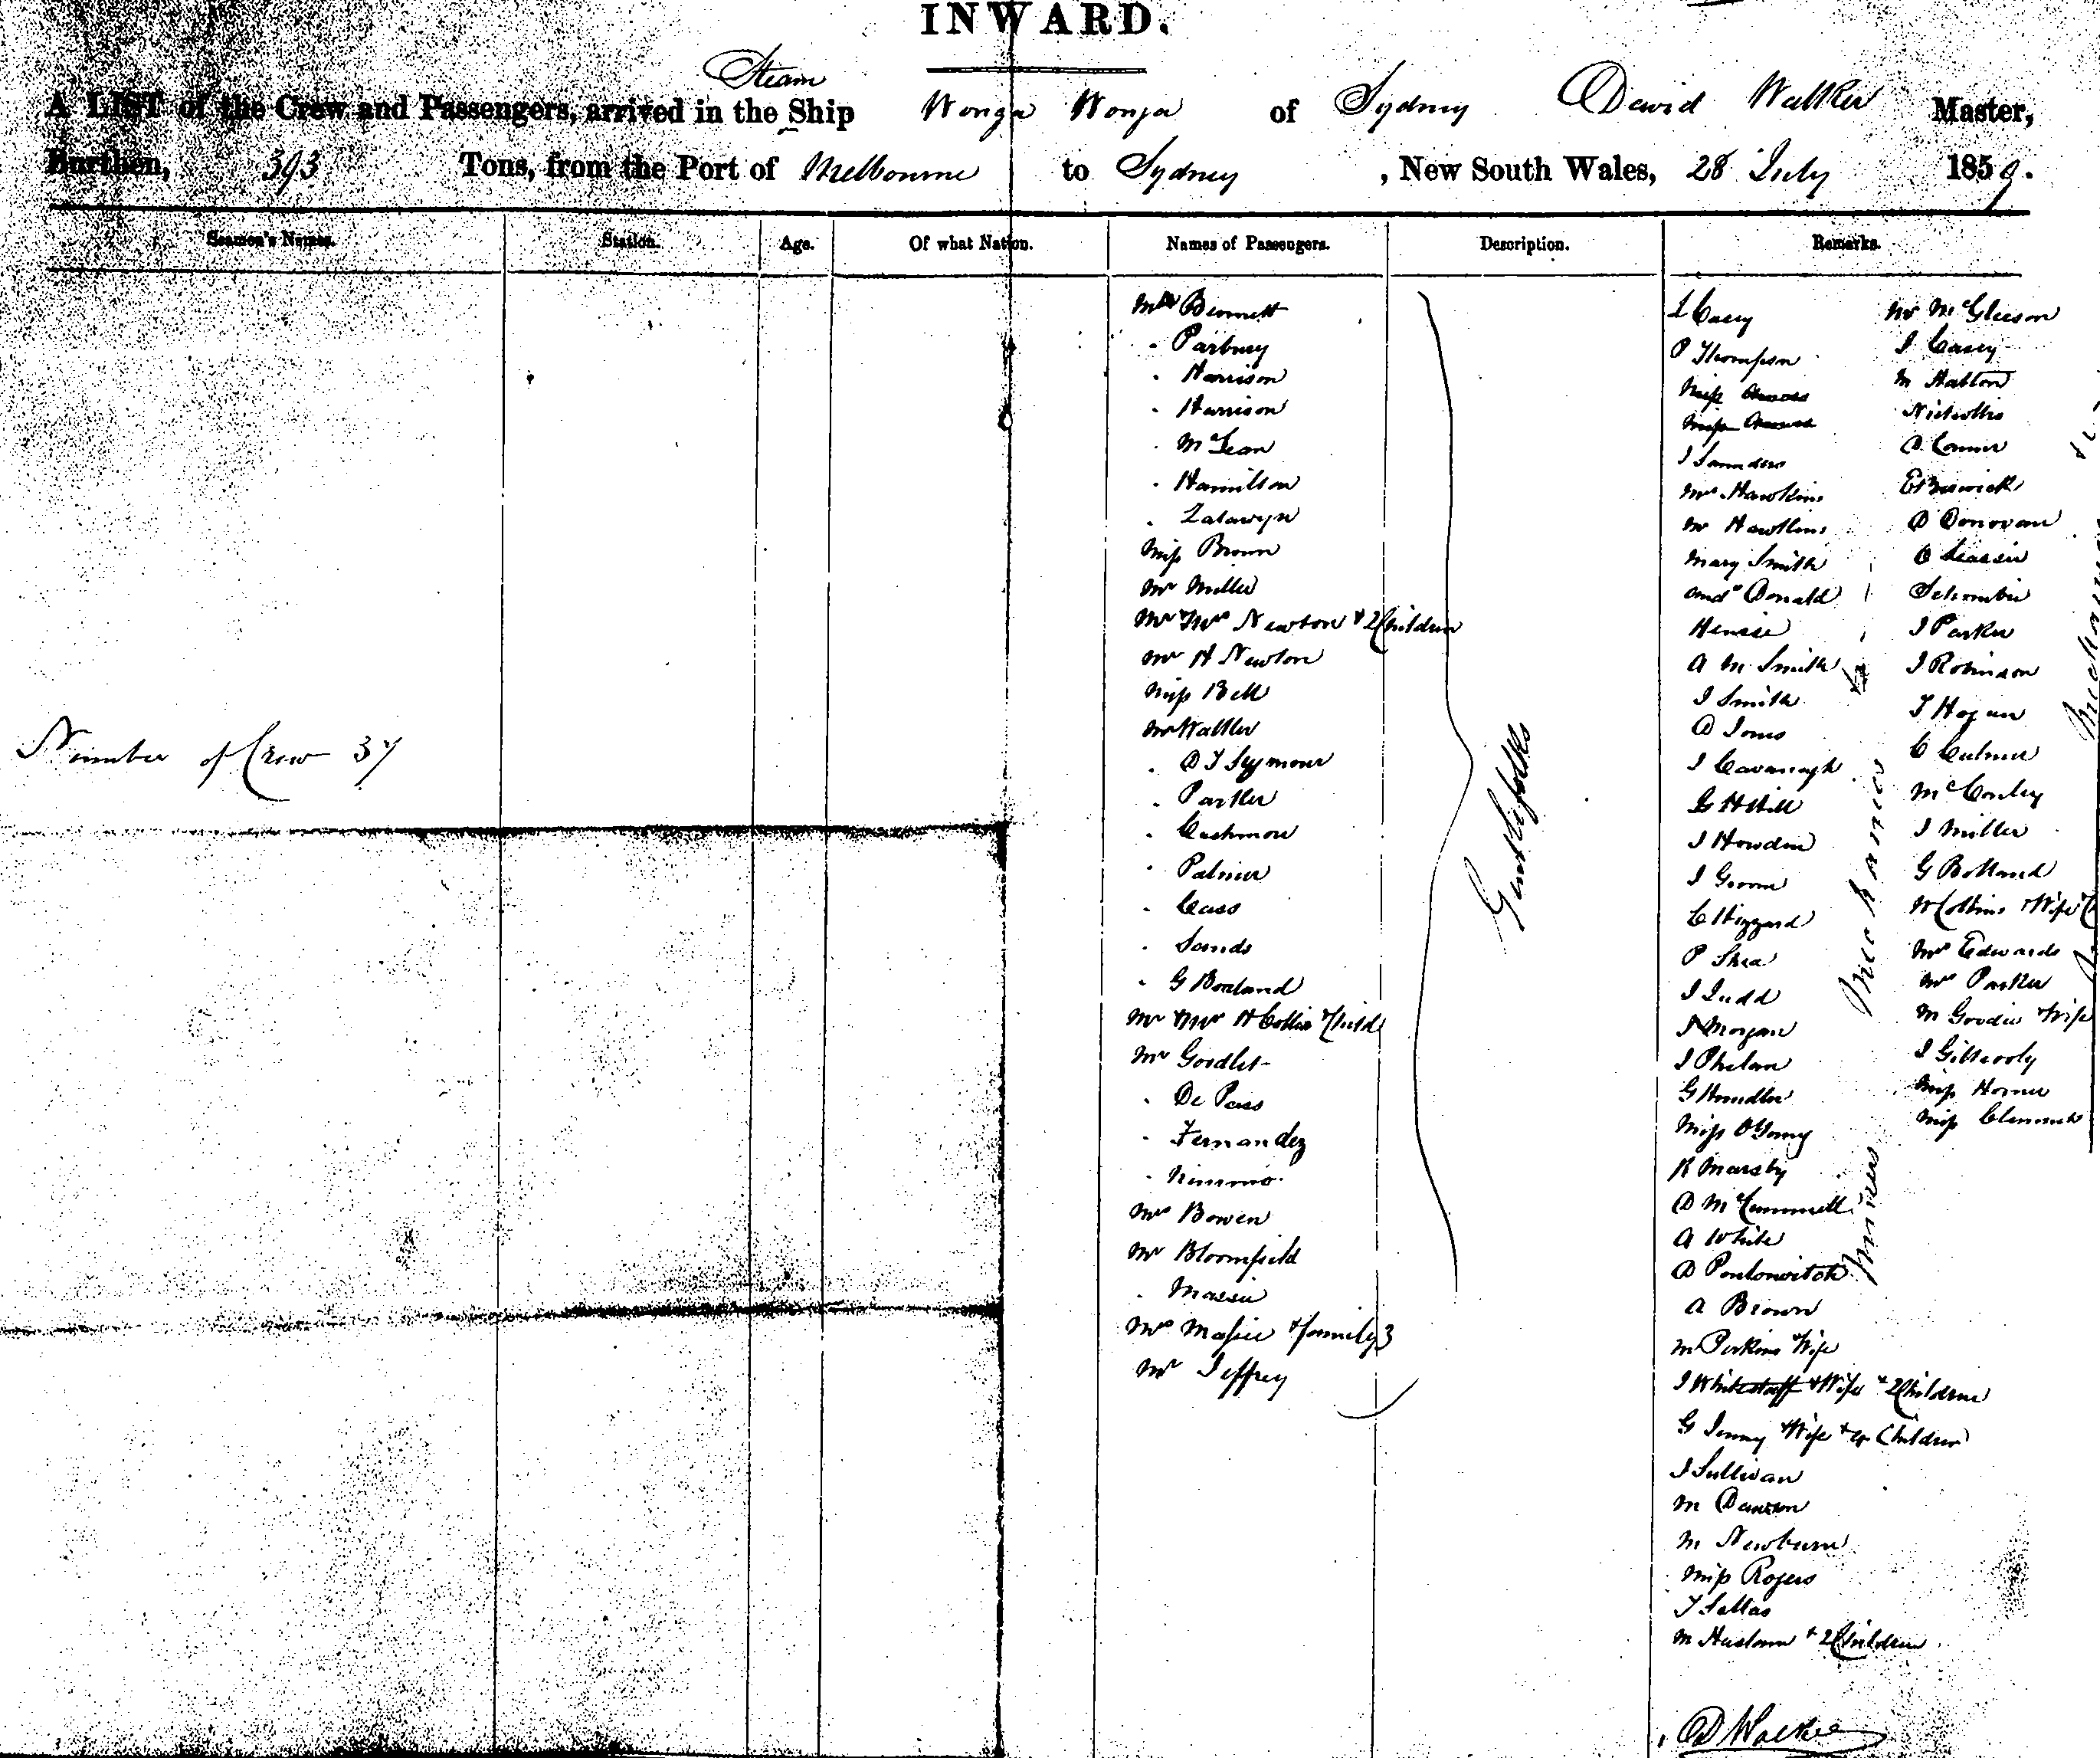 INWARD.
Steam
A LIST of the Crew and Passengers, arrived in the Ship Wonga Wonga of Sydney David Walker Master,
Burthen, 393 Tons, from the Port of Melbourne to Sydney , New South Wales, 28 July 1859.
Seamen's Names. Station. Age. Of what Nation. Names of Passengers. Description. Remarks.
Number of Crew 37
Bennett
" Parbury
" Harrison
" Harrison
" McLean
" Hamilton
"
Miss Brown
Mr Miller
Mr & Mrs Newton & 2 Children
Mr H Newton
Miss Bell
Mr Walker
" D T Seymour
" Parker
" Cashmore
" Palmer
" Cass
" Sands
" G Borland
Mr & Mrs H Collis & Child
Mr Goodlet
" De Pass
" Fernandez
" Nimmo
Mrs Bowen
Mr Bloomfield
" Massie
Mrs Massie & family 3
Mr Jeffrey
Gentlefolks
L Casey
P Thompson
Miss
Miss
J Saunders
Mrs Hawkins
Mr Hawkins
Mary Smith
and Donald
A M Smith
J Smith
D Jones
J Cavanagh
G H Hill
J Howden
J Groom
C Hizzard
P Shea
J Judd
J Morgan
J Phelan
G Handler
Miss
R Marsby
D
A White
D
A Brown
M Perkins & Wife
J Whitestaff & Wife & 2 Children
G Jenny Wife & 4 Children
J Sullivan
M Dawson
M Newburn
Miss Rogers
M & 2 Children
Mechanics
Miners
Mr McGleeson
J Casey
M Hatton
Nicholls
D Connor
E Beswick
D Donovan
J Parker
J Robinson
T Hogan
C Culmer
J Miller
G Bolland
W Collins & Wife
Mrs Edwards
Mrs Parker
M Goodie & Wife
J Gilhooly
Miss Horne
Miss
D Walker